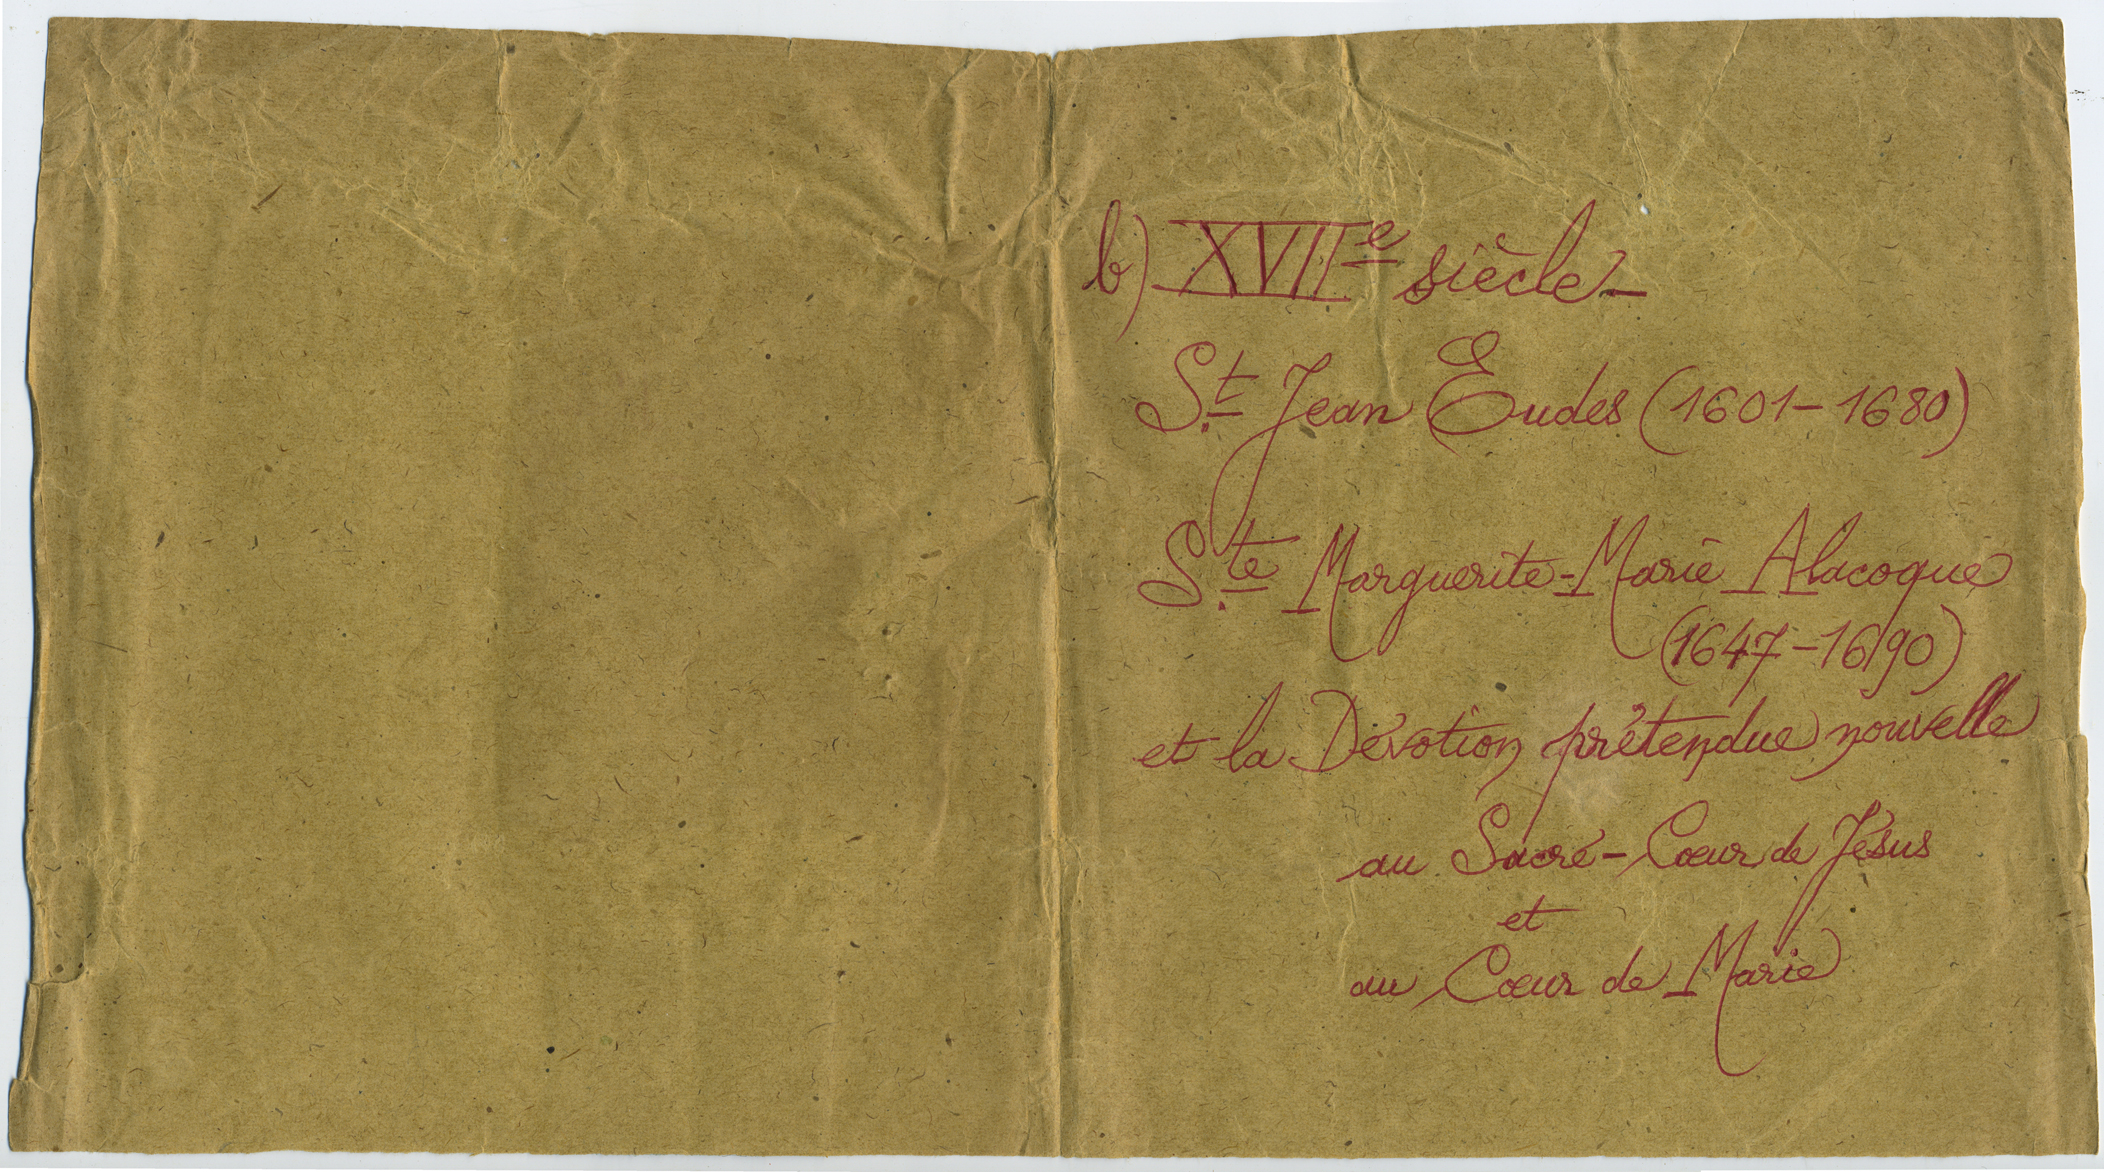 b) XVIIe siècle –
St. Jean Eudes (1601 – 1680)
Ste. Marguerite-Marie Alacoque
(1647 – 1690)
et la Dévotion prétendue nouvelle
au Sacré-Cœur de Jésus
et
au Cœur de Marie